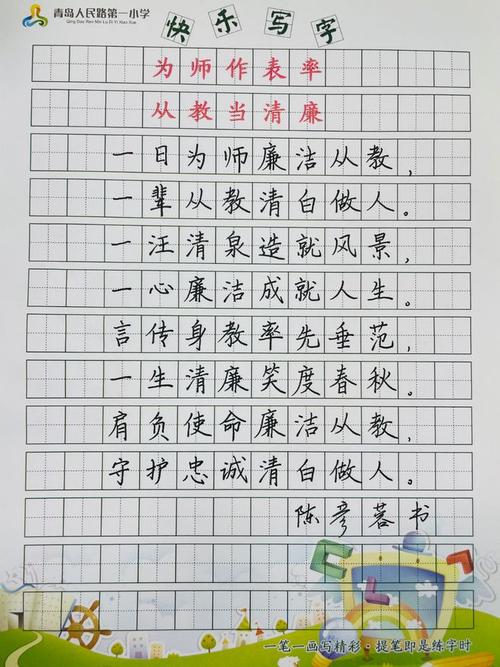 青岛人民路第一小学
Qing Dao Ren Min Lu Di Yi Xiao Xue
快乐写字
为师作表率
从教当清廉
一日为师廉洁从教，
一辈从教清白做人。
一汪清泉造就风景，
一心廉洁成就人生。
言传身教率先垂范，
一生清廉笑度春秋。
肩负使命廉洁从教，
守护忠诚清白做人。
陈彦蓉书
一笔一画写精彩·提笔即是练字时